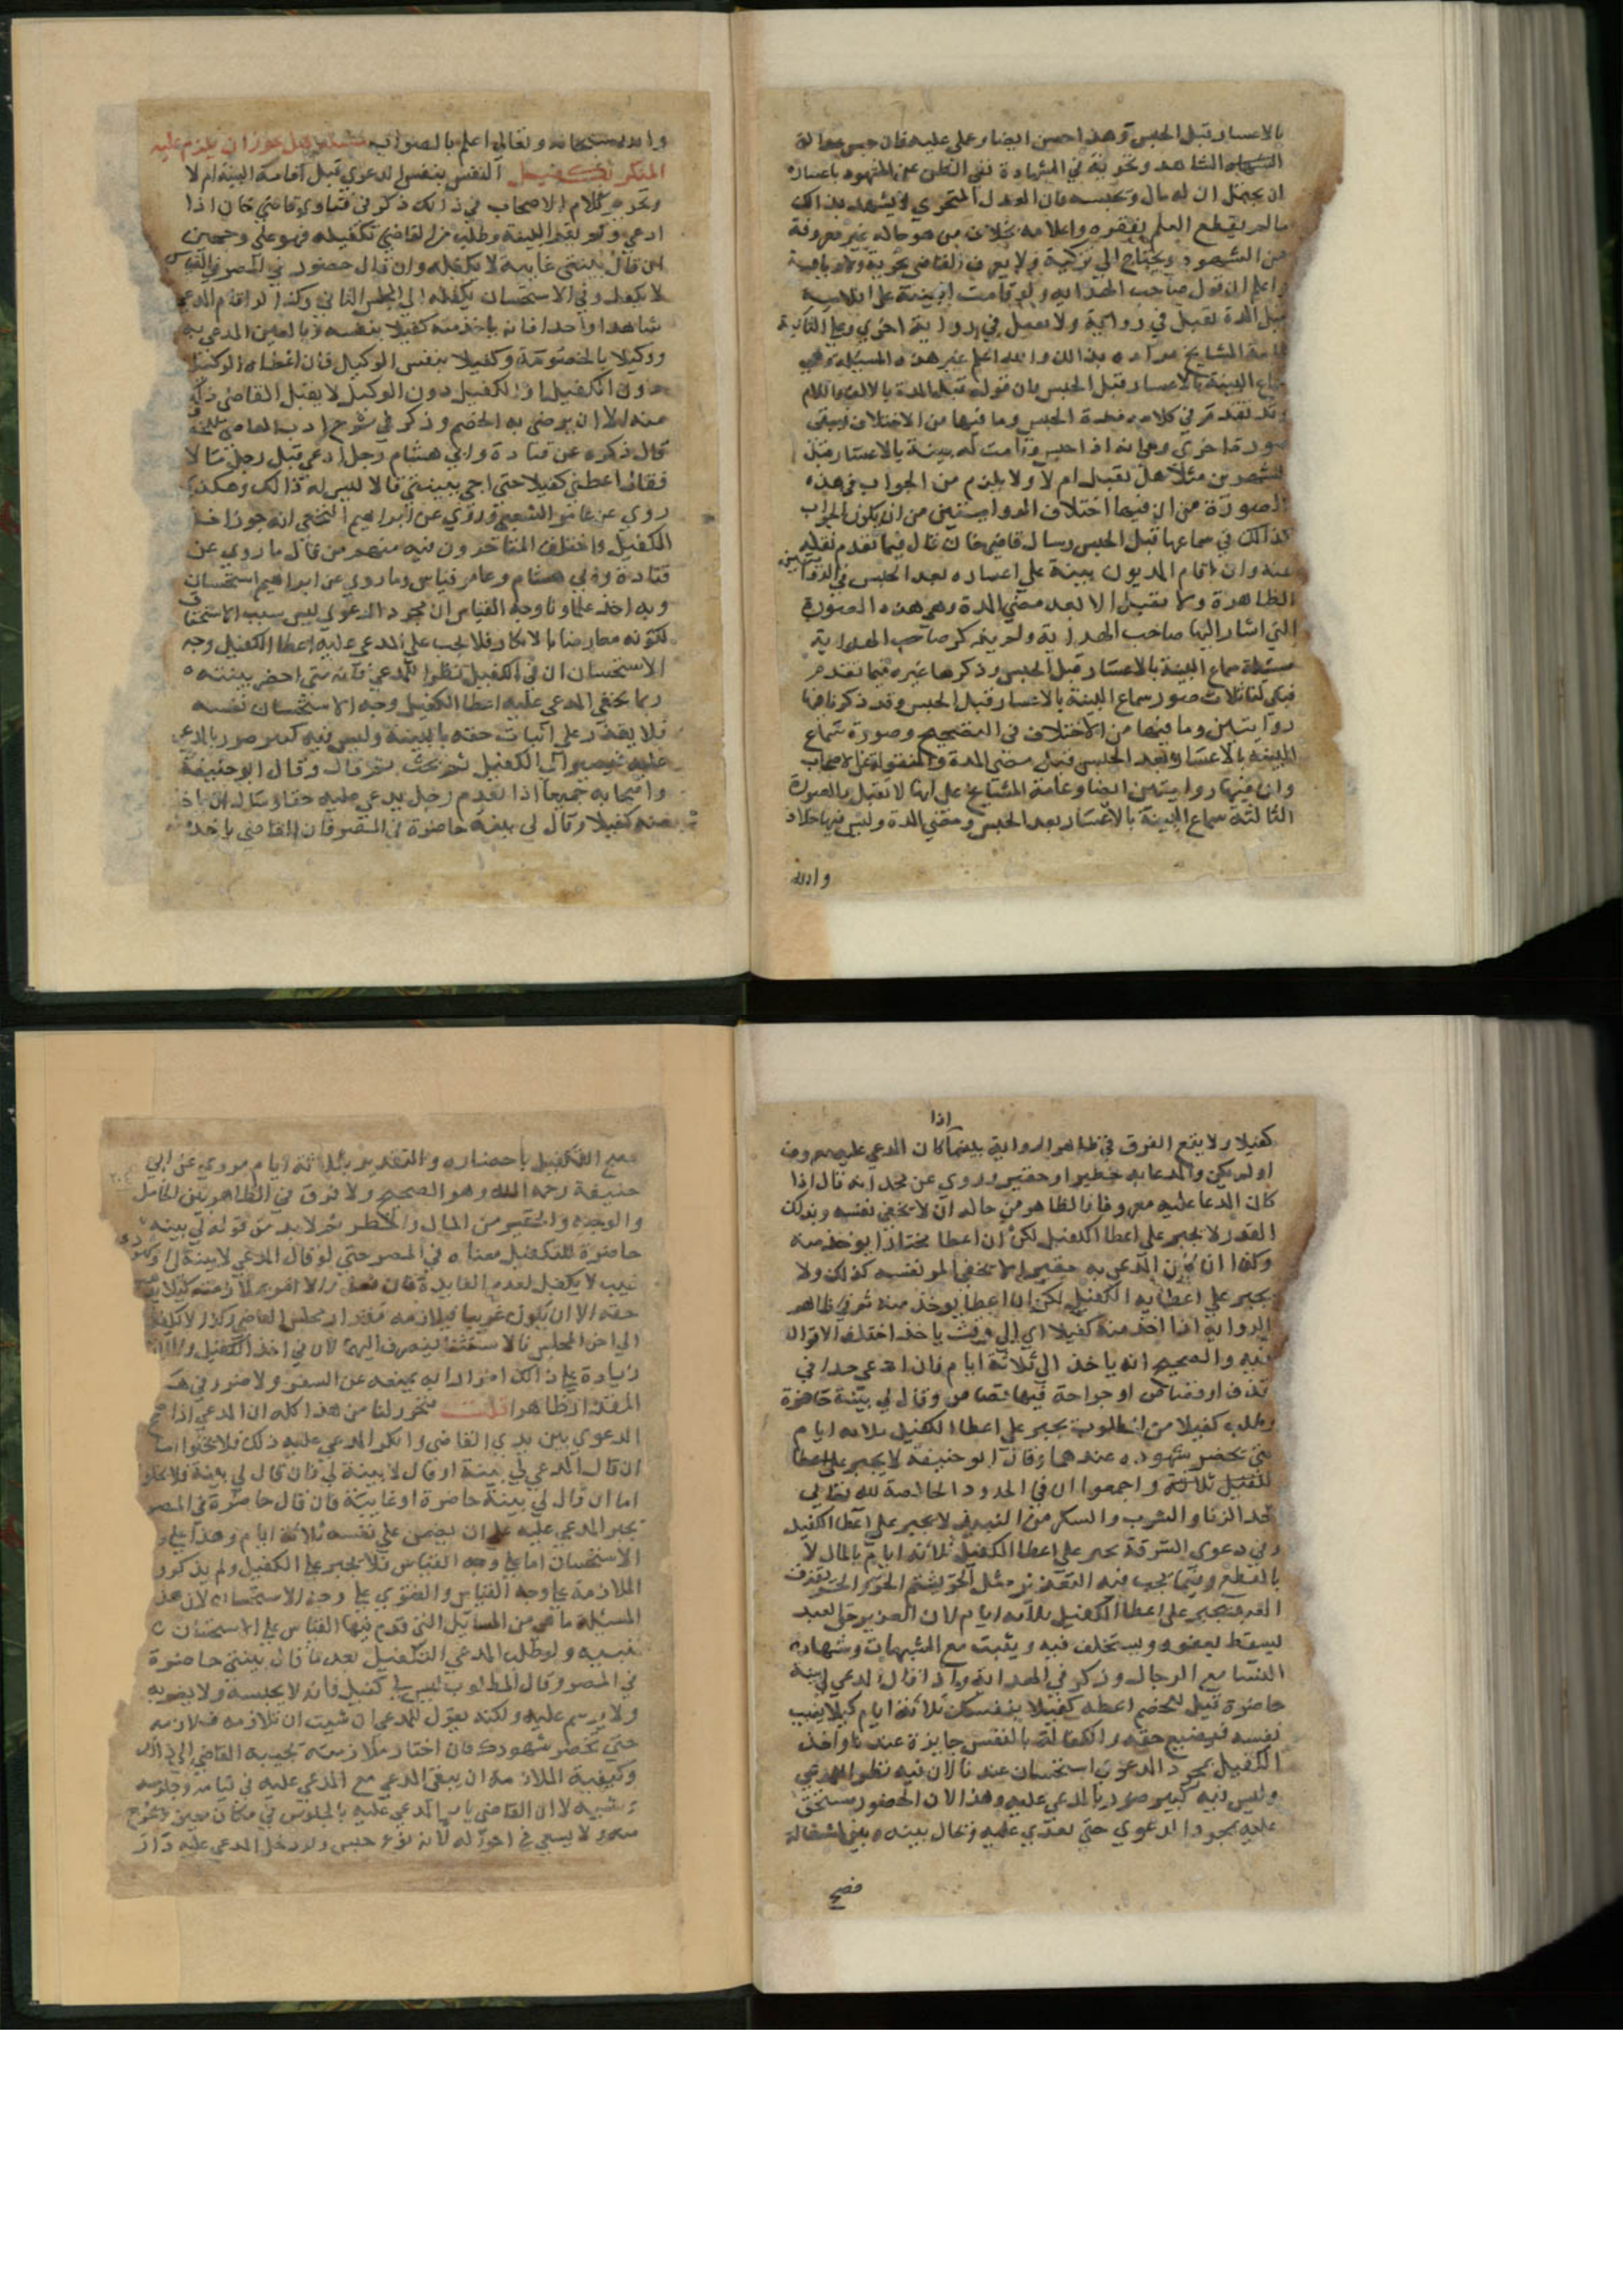 بالاعسار قبل الحبس وهذا احسن ايضا وعلى عليه فان حبس
الشاهد ونحو به في الشهادة نفى الظن عن المشهود باعساره
ان يحتمل ان له مال ونحبسه فان العدل المتحري لا يشهد بذالك
مالم يقطع العلم بفقره واعلامه بخلاف من هو حاله غير معروفة
من الشهود ويحتاج الي تزكية ولا يعرف القاضي
واعلم ان قول صاحب الهدايه ولو قامت البينة على افلاسه
قبل المدة تقبل في رواية ولا تقبل في رواية اخري وعلى الثانية
عامة المشايخ مراده بذالك والله اعلم غير هذه المسئلة وهي
سماع البينة بالاعسار قبل الحبس فان قوله قبل المدة بالالف واللام
وقد تقدم في كلامه مدة الحبس وما فيها من الاختلاف وبقى
صورة اخري وهي انه اذا حبس وقامت له بينة بالاعسار قبل
الشهرين مثلا هل تقبل ام لا ولا يلزم من الجواب في هذه
الصورة من ان فيها اختلاف الروايتين من ان يكون الجواب
كذالك في سماعها قبل الحبس وسال قاضي خان قال فيما تقدم نقله
عنه وان اقام المديون بينة علي اعساره بعد الحبس في الروايتين
الظاهرة ولا تقبل الا بعد مضي المدة وهي هذه الصورة
التي اشار اليها صاحب الهداية ولم يذكر صاحب الهداية
مسئلة سماع البينة بالاعسار قبل الحبس وذكرها غيره فيما تقدم
فبقى لنا ثلاث صور سماع البينة بالاعسار قبل الحبس وقد ذكرنا فيها
روايتين وما فيها من الاختلاف في التصحيح وصورة سماع
البينة بالاعسار بعد الحبس قبل مضى المدة والمنقول عن الاصحاب
وان فيها روايتين ايضا وعامة المشايخ على انها لا تقبل والصورة
الثالثة سماع البينة بالاعسار بعد الحبس ومضي المدة وليس فيها خلاف
والله
والله سبحانه وتعالى اعلم بالصواب مسئلة هل يجوز ان يلزم عليه
المنكر بكفيل النفس بنفس الدعوي قبل اقامة البينة ام لا
وتحرير كلام الاصحاب في ذالك ذكر في فتاوي قاضي خان اذا
ادعي ولم يقم البينة وطلب من القاضي تكفيله فهو على وجهين
ان قال بينتي غايبة لا يكفله وان قال حضور في المصر فالقياس
لا يكفله وفي الاستحسان يكفله الي المجلس الثاني وكذا لو اقام المدعي
شاهدا واحدا فانه ياخذ منه كفيلا بنفسه وبالعين المدعي به
ووكيلا بالخصومة وكفيلا بنفس الوكيل فان اعطاه الوكيل
دون الكفيل او الكفيل دون الوكيل لا يقبل القاضي ذلك
منه الا ان يرضي به الخصم وذكر في شرح ادب القاضي
قال ذكره عن قتادة وابي هشام رجل ادعي قبل رجل مالا
فقال اعطني كفيلا حتى اجي ببينتي قالا ليس له ذالك وهكذا
روي عن عامر الشعبي وروي عن ابراهيم النخعي انه جوز اخذ
الكفيل واختلف المتاخرون فيه منهم من قال ما روي عن
قتادة وابي هشام وعامر قياس وما روي عن ابراهيم استحسان
وبه اخذ علماونا وجه القياس ان مجرد الدعوي ليس سبب الاستحقاق
لكونه معارضا بالانكار فلا يجب على المدعي عليه اعطا الكفيل وجه
الاستحسان ان في الكفيل نظرا للمدعي فانه متى احضر بينته
ربما يخفي المدعي عليه اعطا الكفيل وجه الاستحسان نفسه
فلا يقدر على اثبات حقه بالبينة وليس فيه كبير ضرر بالمدعي
عليه الكفيل ثم قال وقال ابو حنيفة
واصحابه جميعا اذا تقدم رجل يدعي عليه حقا وسال ان ياخذ
منه كفيلا وقال لي بينة حاضرة في المصر فان القاضي ياخذ
اذا
كفيلا ولا يقع الفرق في ظاهر الرواية بينما كان المدعي عليه معروف
او لم يكن والمدعا به خطير او حقير وروي عن محمد انه قال اذا
كان المدعا عليه معروفا فالظاهر من حاله ان لا يخفي نفسه وبذلك
القدر لا يجبر على اعطا الكفيل لكن ان اعطا مختارا يوخذ منه
وكذا ان كان المدعي به حقيرا لا يخفي المر نفسه كذلك ولا
يجبر علي اعطايه الكفيل لكن ان اعطا يوخذ منه ثم في ظاهر
الرواية اذا اخذ منه كفيلا اي الي وقت ياخذ اختلف الاقوال
فيه والصحيح انه ياخذ الي ثلاثة ايام فان ادعي حدا في
قذف او قصاص او جراحة فيها قصاص وقال لي بينة حاضرة
وطلب كفيلا من المطلوب يجبر على اعطا الكفيل ثلاثه ايام
حتى يحضر شهوده عندهما وقال ابو حنيفة لا يجبر على اعطا
الكفيل ثلاثة واجمعوا ان في الحدود الخالصة لله تعالى
كحد الزنا والشرب والسكر من النبيذ لا يجبر علي اعطا الكفيل
وفي دعوي السرقة يجبر على اعطا الكفيل ثلاثة ايام بالمال لا
بالقطع وفيما يجب فيه التعزير مثل
القدر يجبر على اعطا الكفيل ثلاثة ايام لان التعزير حق العبد
يسقط بعفوه ويستحلف فيه ويثبت مع الشبهات وشهادة
النسا مع الرجال وذكر في الهداية واذا قال المدعي لي بينة
حاضرة قيل لخصمه اعطه كفيلا بنفسك ثلاثة ايام كيلا يغيب
نفسه فيضيع حقه والكفالة بالنفس جايزة عندنا واخذ
الكفيل بمجرد الدعوي استحسان عندنا لان فيه نظرا للمدعي
وليس فيه كبير ضرر بالمدعي عليه وهذا لان الحضور مستحق
عليه بمجرد الدعوي حتى يعدي عليه ويحال بينه وبين اشغاله
فصح
فصح التكفيل باحضاره والتقدير بثلاثة ايام مروي عن ابي
حنيفة رحمه الله وهو الصحيح ولا فرق في الظاهر بين الخامل
والوجيه والحقير من المال والخطير ثم لا بد من قوله لي بينه
حاضرة للتكفيل معناه في المصر حتي لو قال المدعي لا بينة لي او شهودي
غيب لا يكفل لعدم الفايدة فان فعل والا امر بملازمته كيلا يذهب
حقه الا ان يكون غريبا فيلازمه مقدار مجلس القاضي وكذا لا يكفل
الي اخر المجلس فالاستثنا ينصرف اليهما لان في اخذ الكفيل والملازمة
زيادة علي ذالك اضرارا به بمنعه عن السفر ولا ضرر في هذا
المقدار ظاهرا قلت فتحرر لنا من هذا كله ان المدعي اذا
الدعوي بين يدي القاضي وانكر المدعي عليه ذلك فلا يخلو اما
ان قال المدعي لي بينة او قال لا بينة لي فان قال لي بينة فلا يخلو
اما ان قال لي بينة حاضرة او غايبة فان قال حاضرة في المصر
يجبر المدعي عليه على ان يضمن علي نفسه ثلاثة ايام وهذا علي
الاستحسان اما علي وجه القياس فلا يجبر علي الكفيل ولم يذكروا
الملازمة علي وجه القياس والفتوي علي وجه الاستحسان لان هذه
المسئلة ما هي من المسايل التي قدم فيها القياس علي الاستحسان
تنبيه ولو طلب المدعي التكفيل بعد ما قال بينتي حاضرة
في المصر وقال المطلوب ليس لي كفيل فانه لا يحبسه ولا يضربه
ولا يرسم عليه ولكنه يقول للمدعي ان شيت ان تلازمه فلازمه
حتي تحضر شهودك فان اختار ملازمته يجيبه القاضي الي ذالك
وكيفية الملازمة ان يبقى المدعي مع المدعي عليه في قيامه وجلوسه
ومشيه لا ان القاضي يامر المدعي عليه بالجلوس في مكان معين
ولا يسعي في اموره لانه نوع حبس ولو دخل المدعي عليه داره